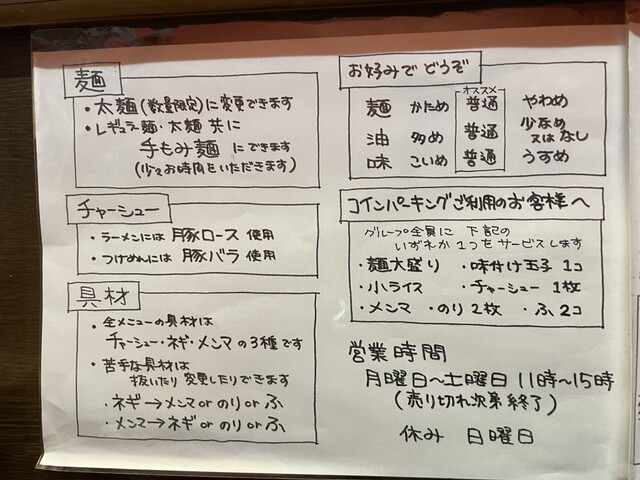 麺
・太麺(数量限定)に変更できます
・レギュラー麺・太麺 共に
手もみ麺 にできます
(少々お時間をいただきます)
チャーシュー
・ラーメンには 豚ロース 使用
・つけめんには 豚バラ 使用
具材
・全メニューの具材は
チャーシュー・ネギ・メンマの3種です
・苦手な具材は
抜いたり 変更したりできます
・ネギ→メンマ or のり or ふ
・メンマ→ネギ or のり or ふ
お好みで どうぞ
オススメ
麺 かため 普通 やわめ
油 多め 普通 少なめ
又は なし
味 こいめ 普通 うすめ
コインパーキングご利用のお客様へ
グループ全員に 下記の
いずれか1つをサービスします
・麺大盛り ・味付け玉子 1コ
・小ライス ・チャーシュー 1枚
・メンマ ・のり2枚 ・ふ2コ
営業時間
月曜日~土曜日 11時~15時
(売り切れ次第終了)
休み 日曜日